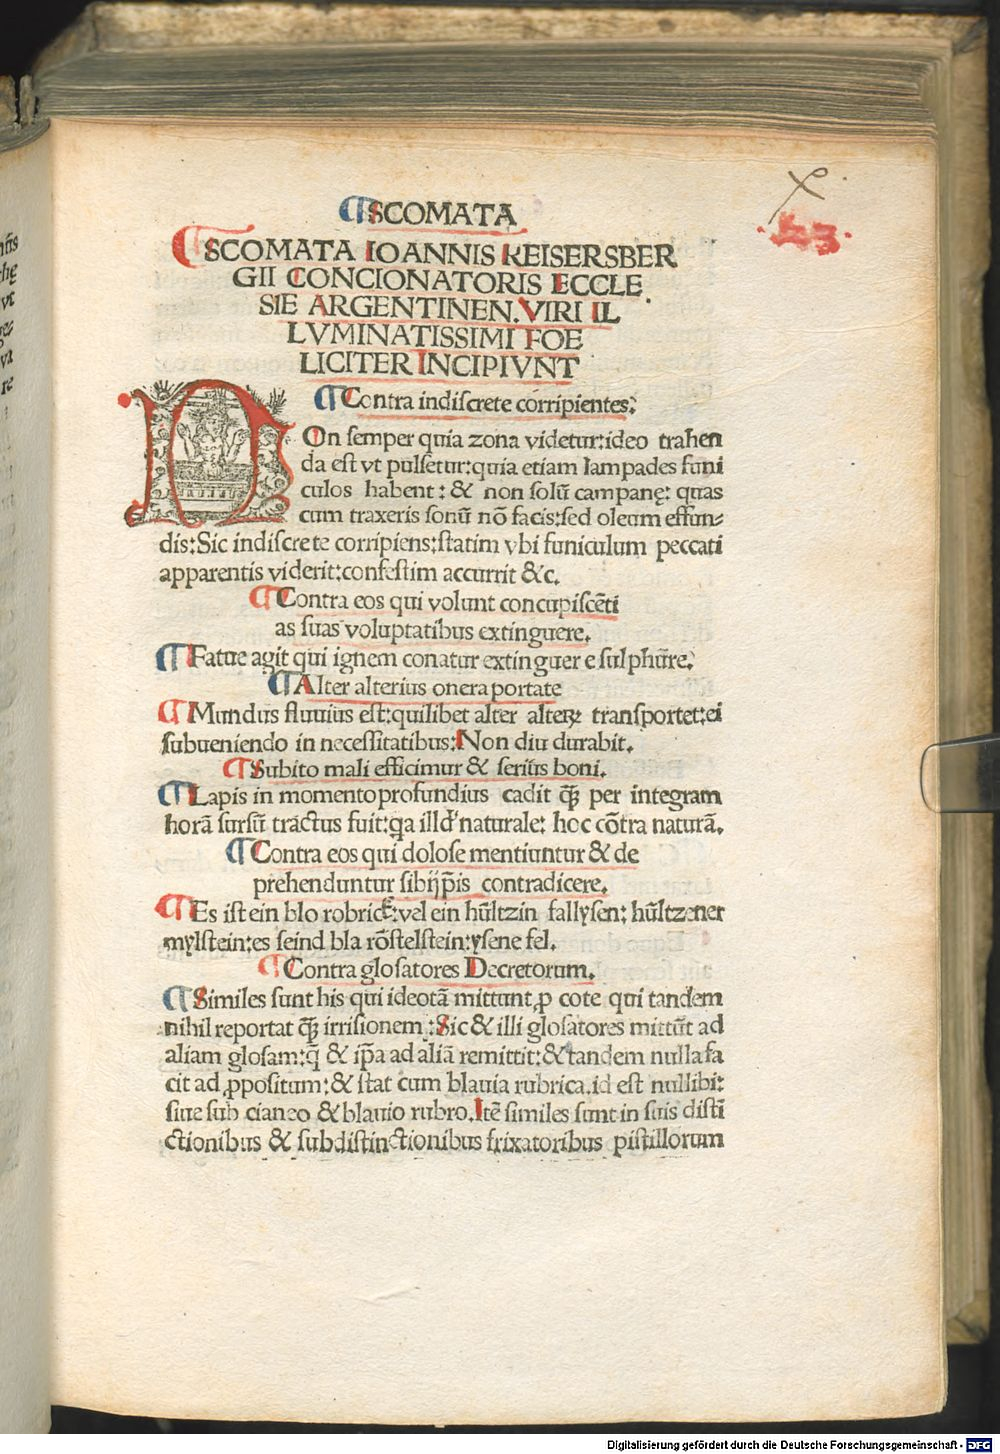 ¶SCOMATA
¶SCOMATA IOANNIS KEISERSBER
GII CONCIONATORIS ECCLE
SIE ARGENTINEN. VIRI IL
LVMINATISSIMI FOE
LICITER INCIPIVNT
¶Contra indiscrete corripientes:
NOn semper quia zona videtur:ideo trahen
da est vt pulsetur:quia etiam lampades funi
culos habent: & non solū campanę: quas
cum traxeris sonū nō facis:sed oleum effun⸗
dis:Sic indiscrete corripiens:statim vbi funiculum peccati
apparentis viderit:confestim accurrit &c.
¶Contra eos qui volunt concupiscēti
as suas voluptatibus extinguere.
¶Fatue agit qui ignem conatur extinguere sulphure.
¶Alter alterius onera portate
¶Mundus fluuius est:quilibet alter alteꝝ transportet:ei
subueniendo in necessitatibus:Non diu durabit.
¶Subito mali efficimur & serius boni.
¶Lapis in momento profundius cadit q̄ꝫ per integram
horā sursū tractus fuit:qa illd' naturale: hoc cōtra naturā.
¶Contra eos qui dolose mentiuntur & de
prehenduntur sibijp̄is contradicere.
¶Es ist ein blo robrick:vel ein hültzin fallysen: hültzener
mylstein:es seind bla röstelstein:ysene fel.
¶Contra glosatores Decretorum.
¶Similes sunt his qui ideotā mittunt ꝓ cote qui tandem
nihil reportat q̄ꝫ irrisionem: Sic & illi glosatores mittūt ad
aliam glosam:q̄ & ip̄a ad aliā remittit:& tandem nulla fa
cit ad ꝓpositum:& stat cum blauia rubrica.id est nullibi:
siue sub cianeo & blauio rubro. Itē similes sunt in suis disti
ctionibus & subdistinctionibus frixatoribus pistillorum
Digitalisierung gefördert durch die Deutsche Forschungsgemeinschaft - DFG